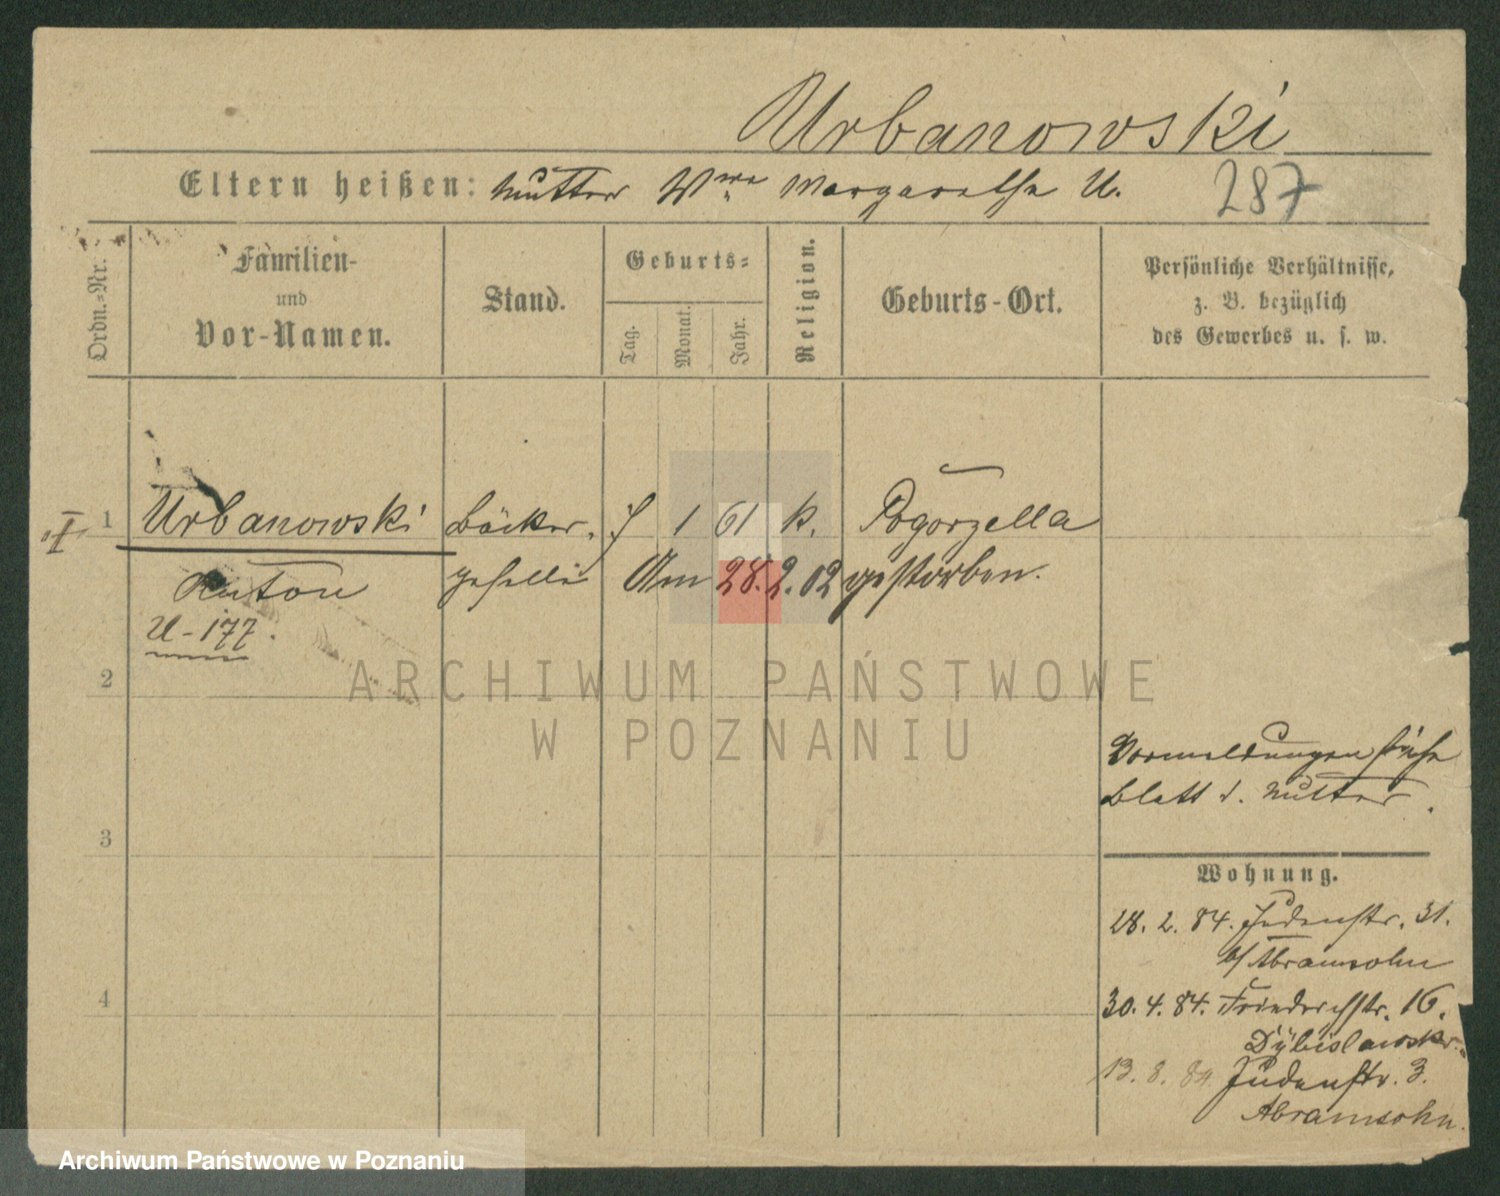 Urbanowski
Eltern heißen: Mutter Wwe Margarethe U. 287
Ordn.-Nr.
Familien-
und
Vor-Namen.
Stand.
Geburts-
Tag.
Monat.
Jahr.
Religion.
Geburts-Ort.
Persönliche Verhältnisse,
z. B. bezüglich
des Gewerbes u. s. w.
"I" 1 Urbanowski Bäcker- 1 61 k. Pogorzella
Anton geselle Am 28.2.02 gestorben.
U-177.
2
ARCHIWUM PAŃSTWOWE
W POZNANIU
Vormeldungen siehe
Blatt d. Mutter.
3
Wohnung.
28. 2. 84. Judenstr. 31.
b/ Abramsohn
4
30. 4. 84. Friedrichstr. 16.
13. 8. 84 Judenstr. 3.
Abramsohn.
Archiwum Państwowe w Poznaniu